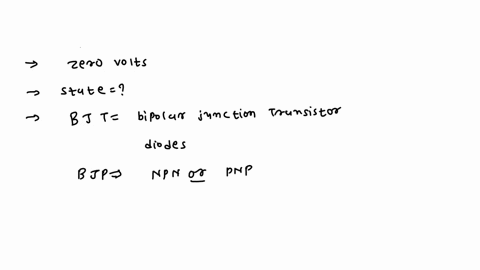 → zero volts
→ state = ?
→ BJT = bipolar junction Transistor
diodes
BJP ⇒ NPN or PNP